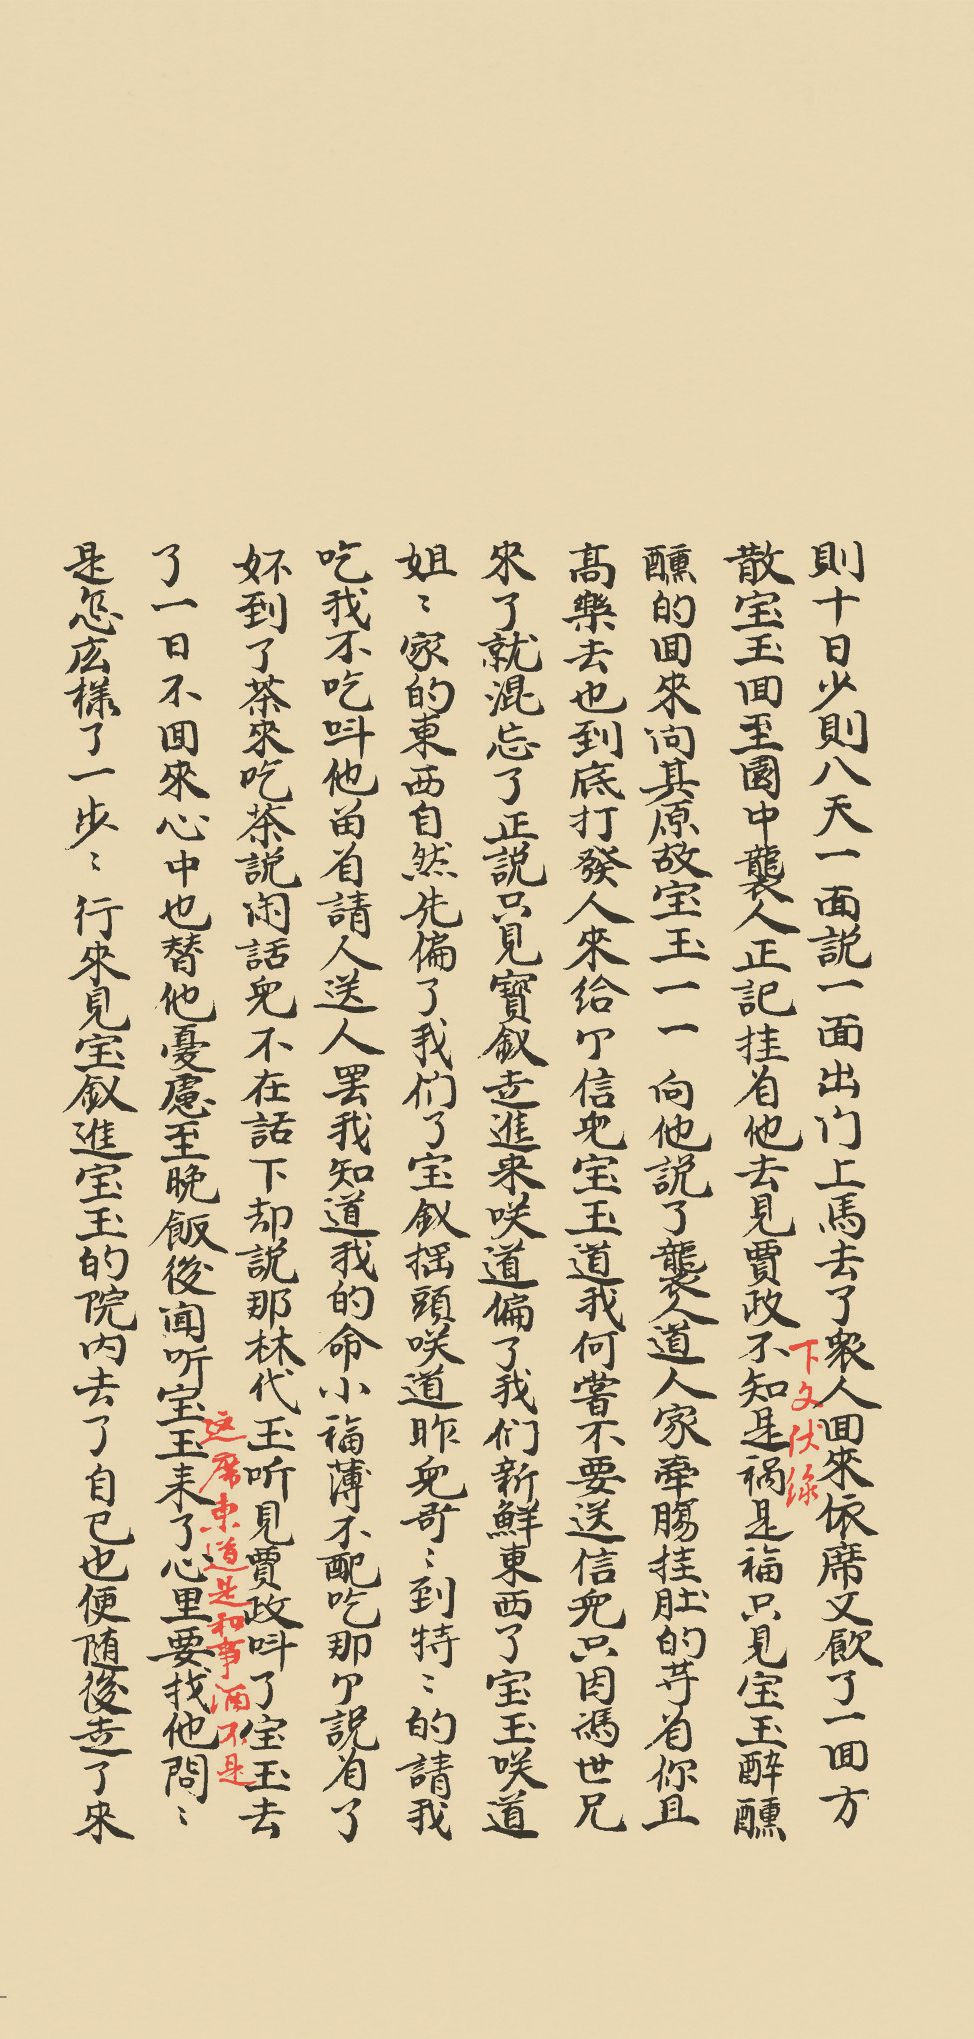 則十日少則八天一面説一面出门上馬去了衆人回來依席又飲了一回方
下文伏線
散宝玉回至園中襲人正記挂着他去見賈政不知是禍是福只见宝玉醉醺
醺的回來问其原故宝玉一一向他説了襲人道人家牽腸挂肚的等着你且
高樂去也到底打發人來给个信兒宝玉道我何嘗不要送信兒只因馮世兄
來了就混忘了正説只見寶釵走進来咲道偏了我们新鮮東西了宝玉咲道
姐〻家的東西自然先偏了我们了宝釵摇頭咲道昨兒哥〻到特〻的請我
吃我不吃呌他留着請人送人罷我知道我的命小福薄不配吃那个説着了
妚到了茶來吃茶説闲話兒不在話下却説那林代玉听見賈政呌了宝玉去
这席東道是和事酒不是
了一日不回來心中也替他憂慮至晚飯後闻听宝玉来了心里要找他問〻
是怎庅様了一步〻行來見宝釵進宝玉的院内去了自己也便随後走了來